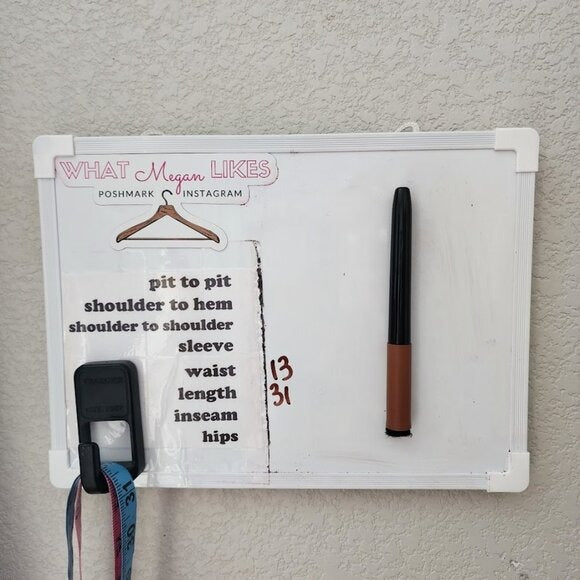 WHAT Megan LIKES
POSHMARK INSTAGRAM
pit to pit
shoulder to hem
shoulder to shoulder
sleeve
waist 13
length 31
inseam
hips